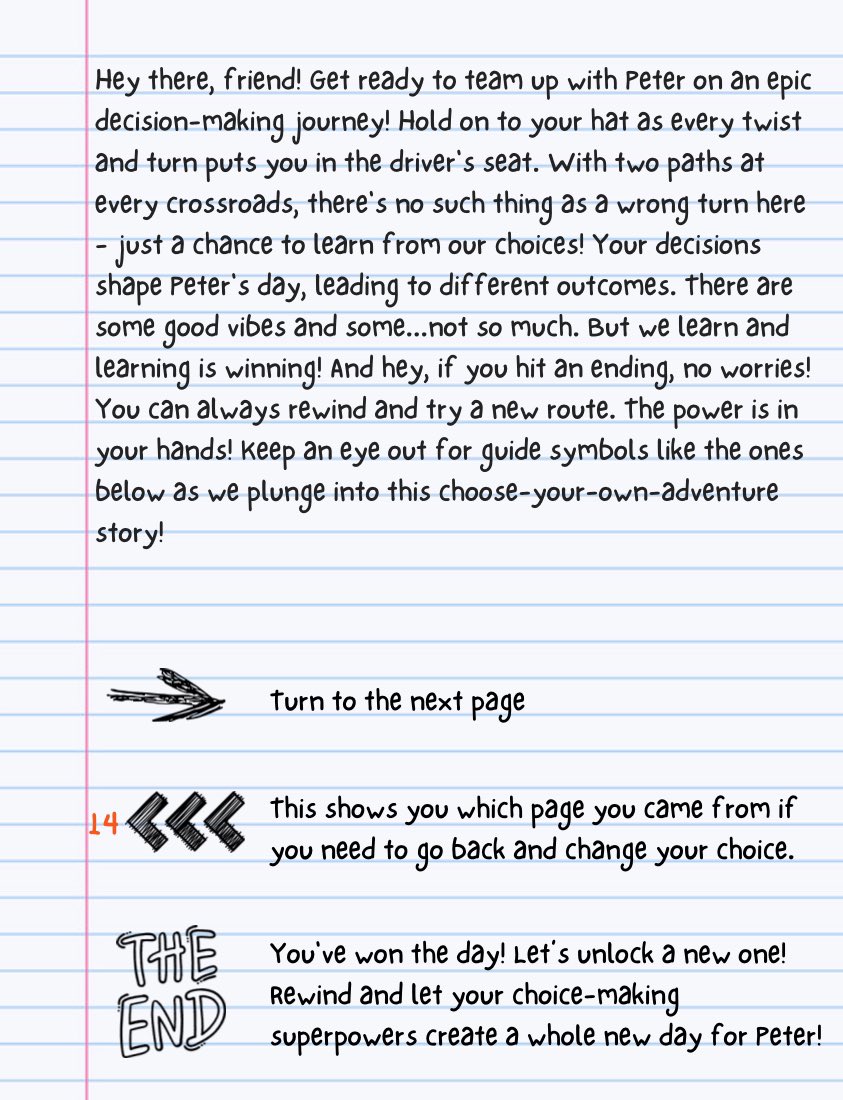 Hey there, friend! Get ready to team up with Peter on an epic
decision-making journey! Hold on to your hat as every twist
and turn puts you in the driver's seat. With two paths at
every crossroads, there's no such thing as a wrong turn here
- just a chance to learn from our choices! Your decisions
shape Peter's day, leading to different outcomes. There are
some good vibes and some...not so much. But we learn and
learning is winning! And hey, if you hit an ending, no worries!
You can always rewind and try a new route. The power is in
your hands! Keep an eye out for guide symbols like the ones
below as we plunge into this choose-your-own-adventure
story!
Turn to the next page
14
This shows you which page you came from if
you need to go back and change your choice.
THE
END
You've won the day! Let's unlock a new one!
Rewind and let your choice-making
superpowers create a whole new day for Peter!